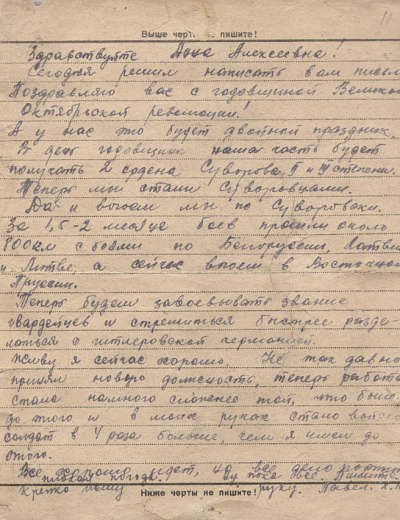 11
Выше черты не пишите!
Здравствуйте Анна Алексеевна!
Сегодня решил написать вам письмо
Поздравляю вас с годовщиной Великой
Октябрьской революции!
А у нас это будет двойной праздник.
В день годовщины наша часть будет
получать 2 ордена Суворова I и II степени.
Теперь мы стали Суворовцами.
Да и воюем мы по Суворовски.
За 1,5-2 месяца боев прошли около
800 км с боями по Белоруссии, Латвии
и Литве, а сейчас воюем в Восточной
Пруссии.
Теперь будем завоевывать звание
гвардейцев и стремиться быстрее разде-
латься с гитлеровской германией.
Живу я сейчас хорошо. Не так давно
принял новую должность, теперь работа
стала намного сложнее той, что была
до этого и в моих руках стало
солдат в 4 раза больше, чем я имел до
этого.
Все хорошо идет, но все дело портит
плохая погода. Ну пока все. Пишите.
Крепко жму руку.
Ниже черты не пишите!